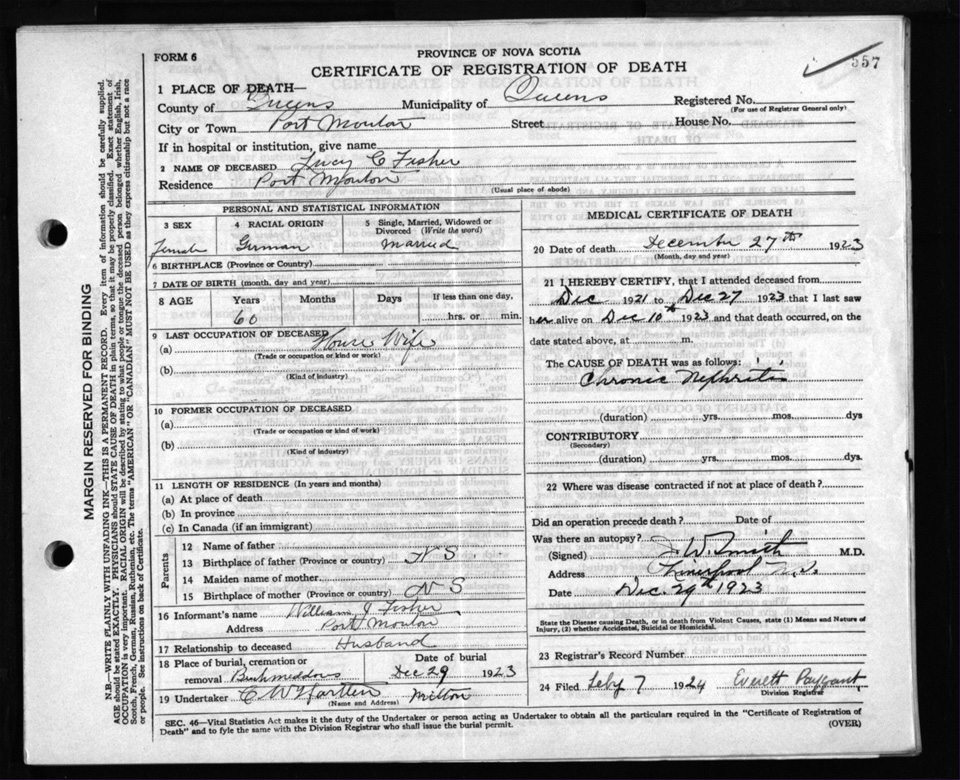 FORM 6
PROVINCE OF NOVA SCOTIA
CERTIFICATE OF REGISTRATION OF DEATH
557
1 PLACE OF DEATH—
County of Queens Municipality of Queens Registered No.
(For use of Registrar General only)
City or Town Port Mouton Street House No.
If in hospital or institution, give name
2 NAME OF DECEASED Lucy C Fisher
Residence Port Mouton
(Usual place of abode)
PERSONAL AND STATISTICAL INFORMATION
3 SEX 4 RACIAL ORIGIN 5 Single, Married, Widowed or
Divorced (Write the word)
Female German Married
6 BIRTHPLACE (Province or Country)
7 DATE OF BIRTH (month, day and year)
8 AGE Years Months Days If less than one day,
60 hrs. or min.
9 LAST OCCUPATION OF DECEASED
(a) House Wife
(Trade or occupation or kind or work)
(b)
(Kind of industry)
10 FORMER OCCUPATION OF DECEASED
(a)
(Trade or occupation or kind of work)
(b)
(Kind of industry)
11 LENGTH OF RESIDENCE (In years and months)
(a) At place of death
(b) In province
(c) In Canada (if an immigrant)
Parents
12 Name of father
13 Birthplace of father (Province or country) N S
14 Maiden name of mother
15 Birthplace of mother (Province or country) N S
16 Informant's name William J Fisher
Address Port Mouton
17 Relationship to deceased Husband
18 Place of burial, cremation or Date of burial
removal Dec 29 1923
19 Undertaker C. W. Milton
(Name and Address)
MEDICAL CERTIFICATE OF DEATH
20 Date of death December 27th 1923
(Month, day and year)
21 I HEREBY CERTIFY, that I attended deceased from
Dec 1921 to Dec 27 1923 that I last saw
her alive on Dec 10th 1923 and that death occurred, on the
date stated above, at m.
The CAUSE OF DEATH was as follows:
Chronic Nephritis
(duration) yrs. mos. dys
CONTRIBUTORY
(Secondary)
(duration) yrs. mos. dys.
22 Where was disease contracted if not at place of death?
Did an operation precede death? Date of
Was there an autopsy?
(Signed) J. W. Smith M.D.
Address Liverpool N.S.
Date Dec. 29th 1923
State the Disease causing Death, or in death from Violent Causes, state (1) Means and Nature of
Injury, (2) whether Accidental, Suicidal or Homicidal.
23 Registrar's Record Number
24 Filed Feby 7 1924 Everett Payzant
Division Registrar
SEC. 46—Vital Statistics Act makes it the duty of the Undertaker or person acting as Undertaker to obtain all the particulars required in the "Certificate of Registration of
Death" and to fyle the same with the Division Registrar who shall issue the burial permit. (OVER)
MARGIN RESERVED FOR BINDING
N.B.—WRITE PLAINLY WITH UNFADING INK—THIS IS A PERMANENT RECORD. Every item of information should be carefully supplied.
AGE should be stated EXACTLY. PHYSICIANS should STATE CAUSE OF DEATH in plain terms, so that it may be properly classified. Exact statement of
OCCUPATION is very important. RACIAL ORIGIN will be described by stating to what people or tongue the deceased person belonged whether English, Irish,
Scotch, French, German, Russian, Ruthenian, etc. The terms "AMERICAN" OR "CANADIAN" MUST NOT BE USED as they express citizenship but not a race
or people. See instructions on back of Certificate.